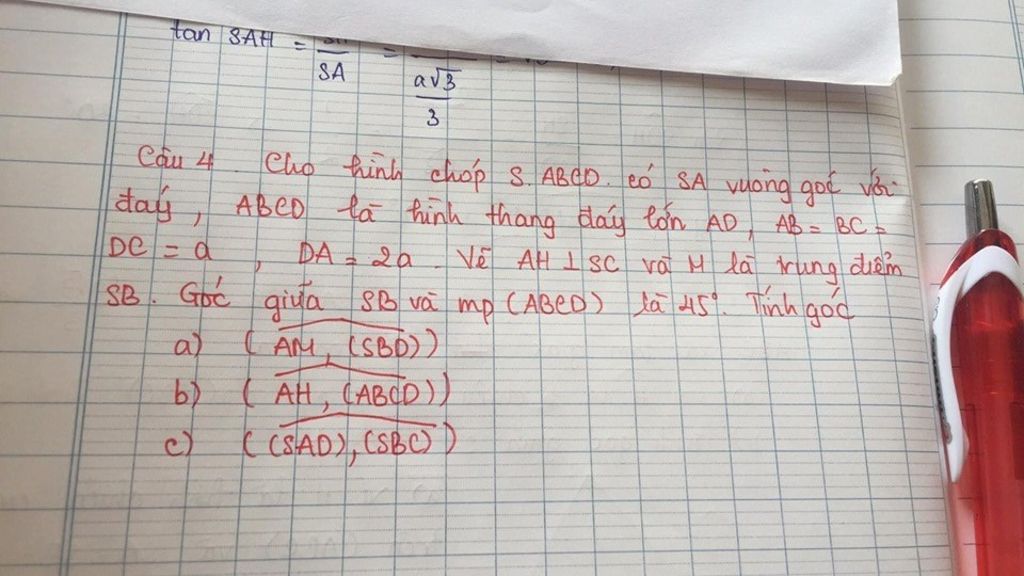 tan SAH = / SA = a√3 / 3
Câu 4. Cho hình chóp S.ABCD. có SA vuông góc với
đáy, ABCD là hình thang đáy lớn AD, AB = BC =
DC = a, DA = 2a. Vẽ AH ⊥ SC và M là trung điểm
SB. Góc giữa SB và mp (ABCD) là 45°. Tính góc
a) (AM, (SBD))
b) (AH, (ABCD))
c) ((SAD), (SBC))